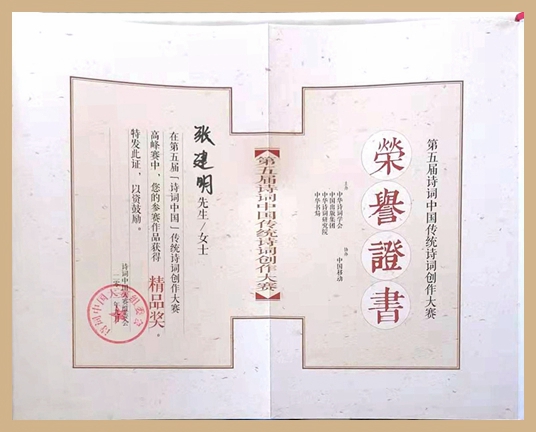 第五届诗词中国传统诗词创作大赛
榮譽證書
主办
中华诗词学会
中国出版集团
中华诗词研究院
中华书局
协办
中国移动
【第五届诗词中国传统诗词创作大赛】
张建明先生/女士
在第五届「诗词中国」传统诗词创作大赛
高峰赛中，您的参赛作品获得 精品奖。
特发此证，以资鼓励。